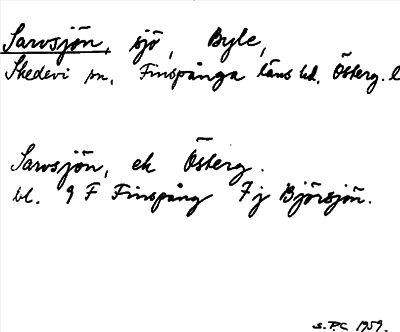 Sarvsjön, sjö, Byle,
Skedevi sn, Finspånga läns hd. Österg. l
Sarvsjön, ek Österg.
bl. 9 F Finspång 7j Björsjön.
S.P.C 1959.